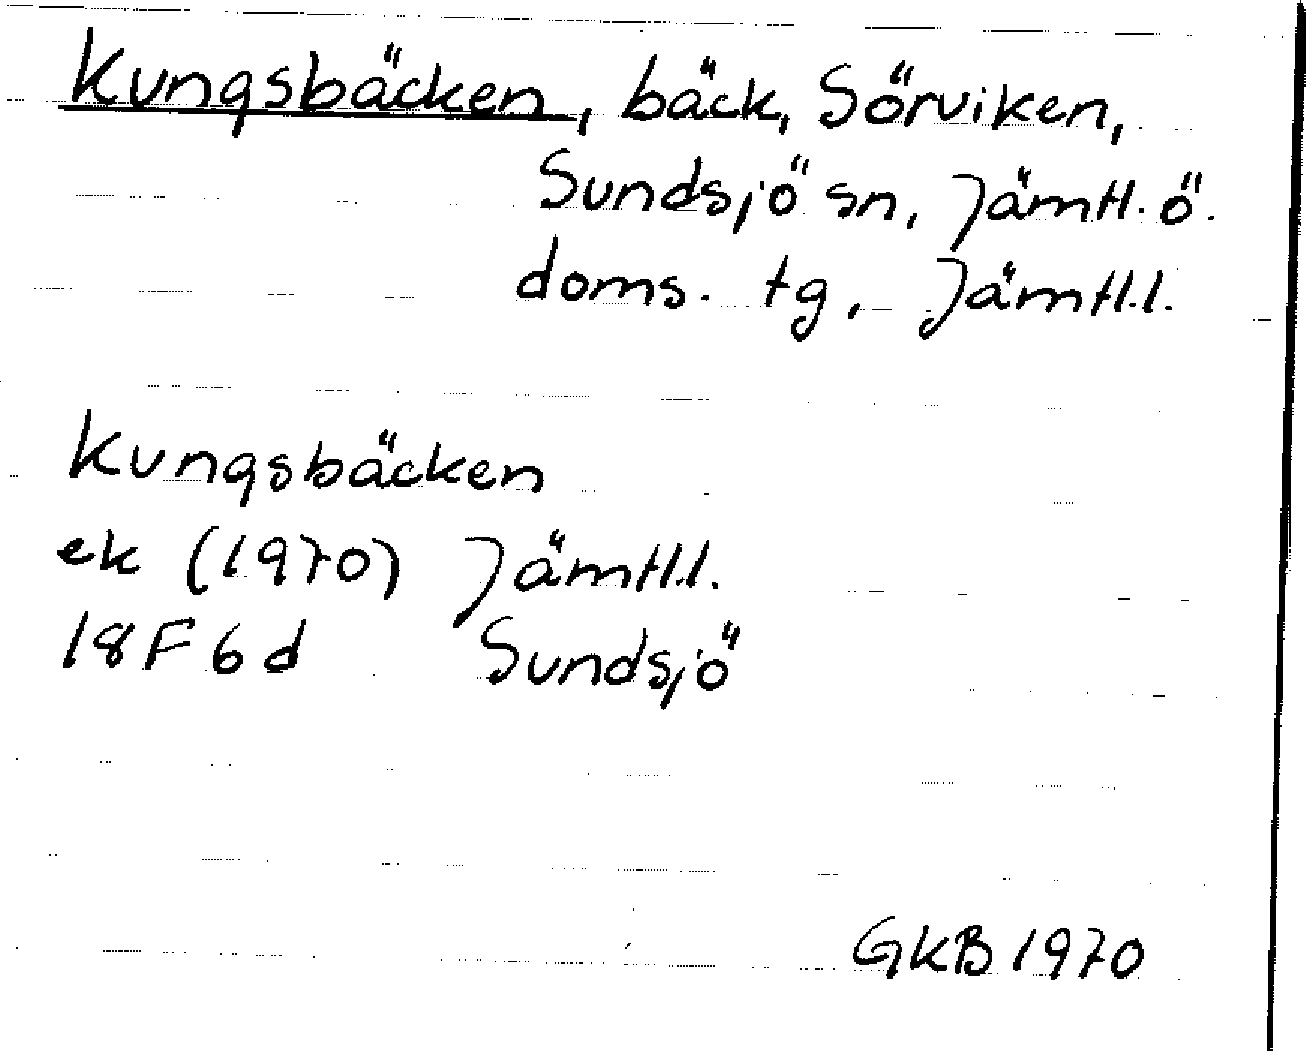 Kungsbäcken, bäck, Sörviken,
Sundsjö sn, Jämtl. ö.
doms. tg, Jämtl.l.
Kungsbäcken
ek (1970) Jämtl.l.
18F6d Sundsjö
GKB 1970